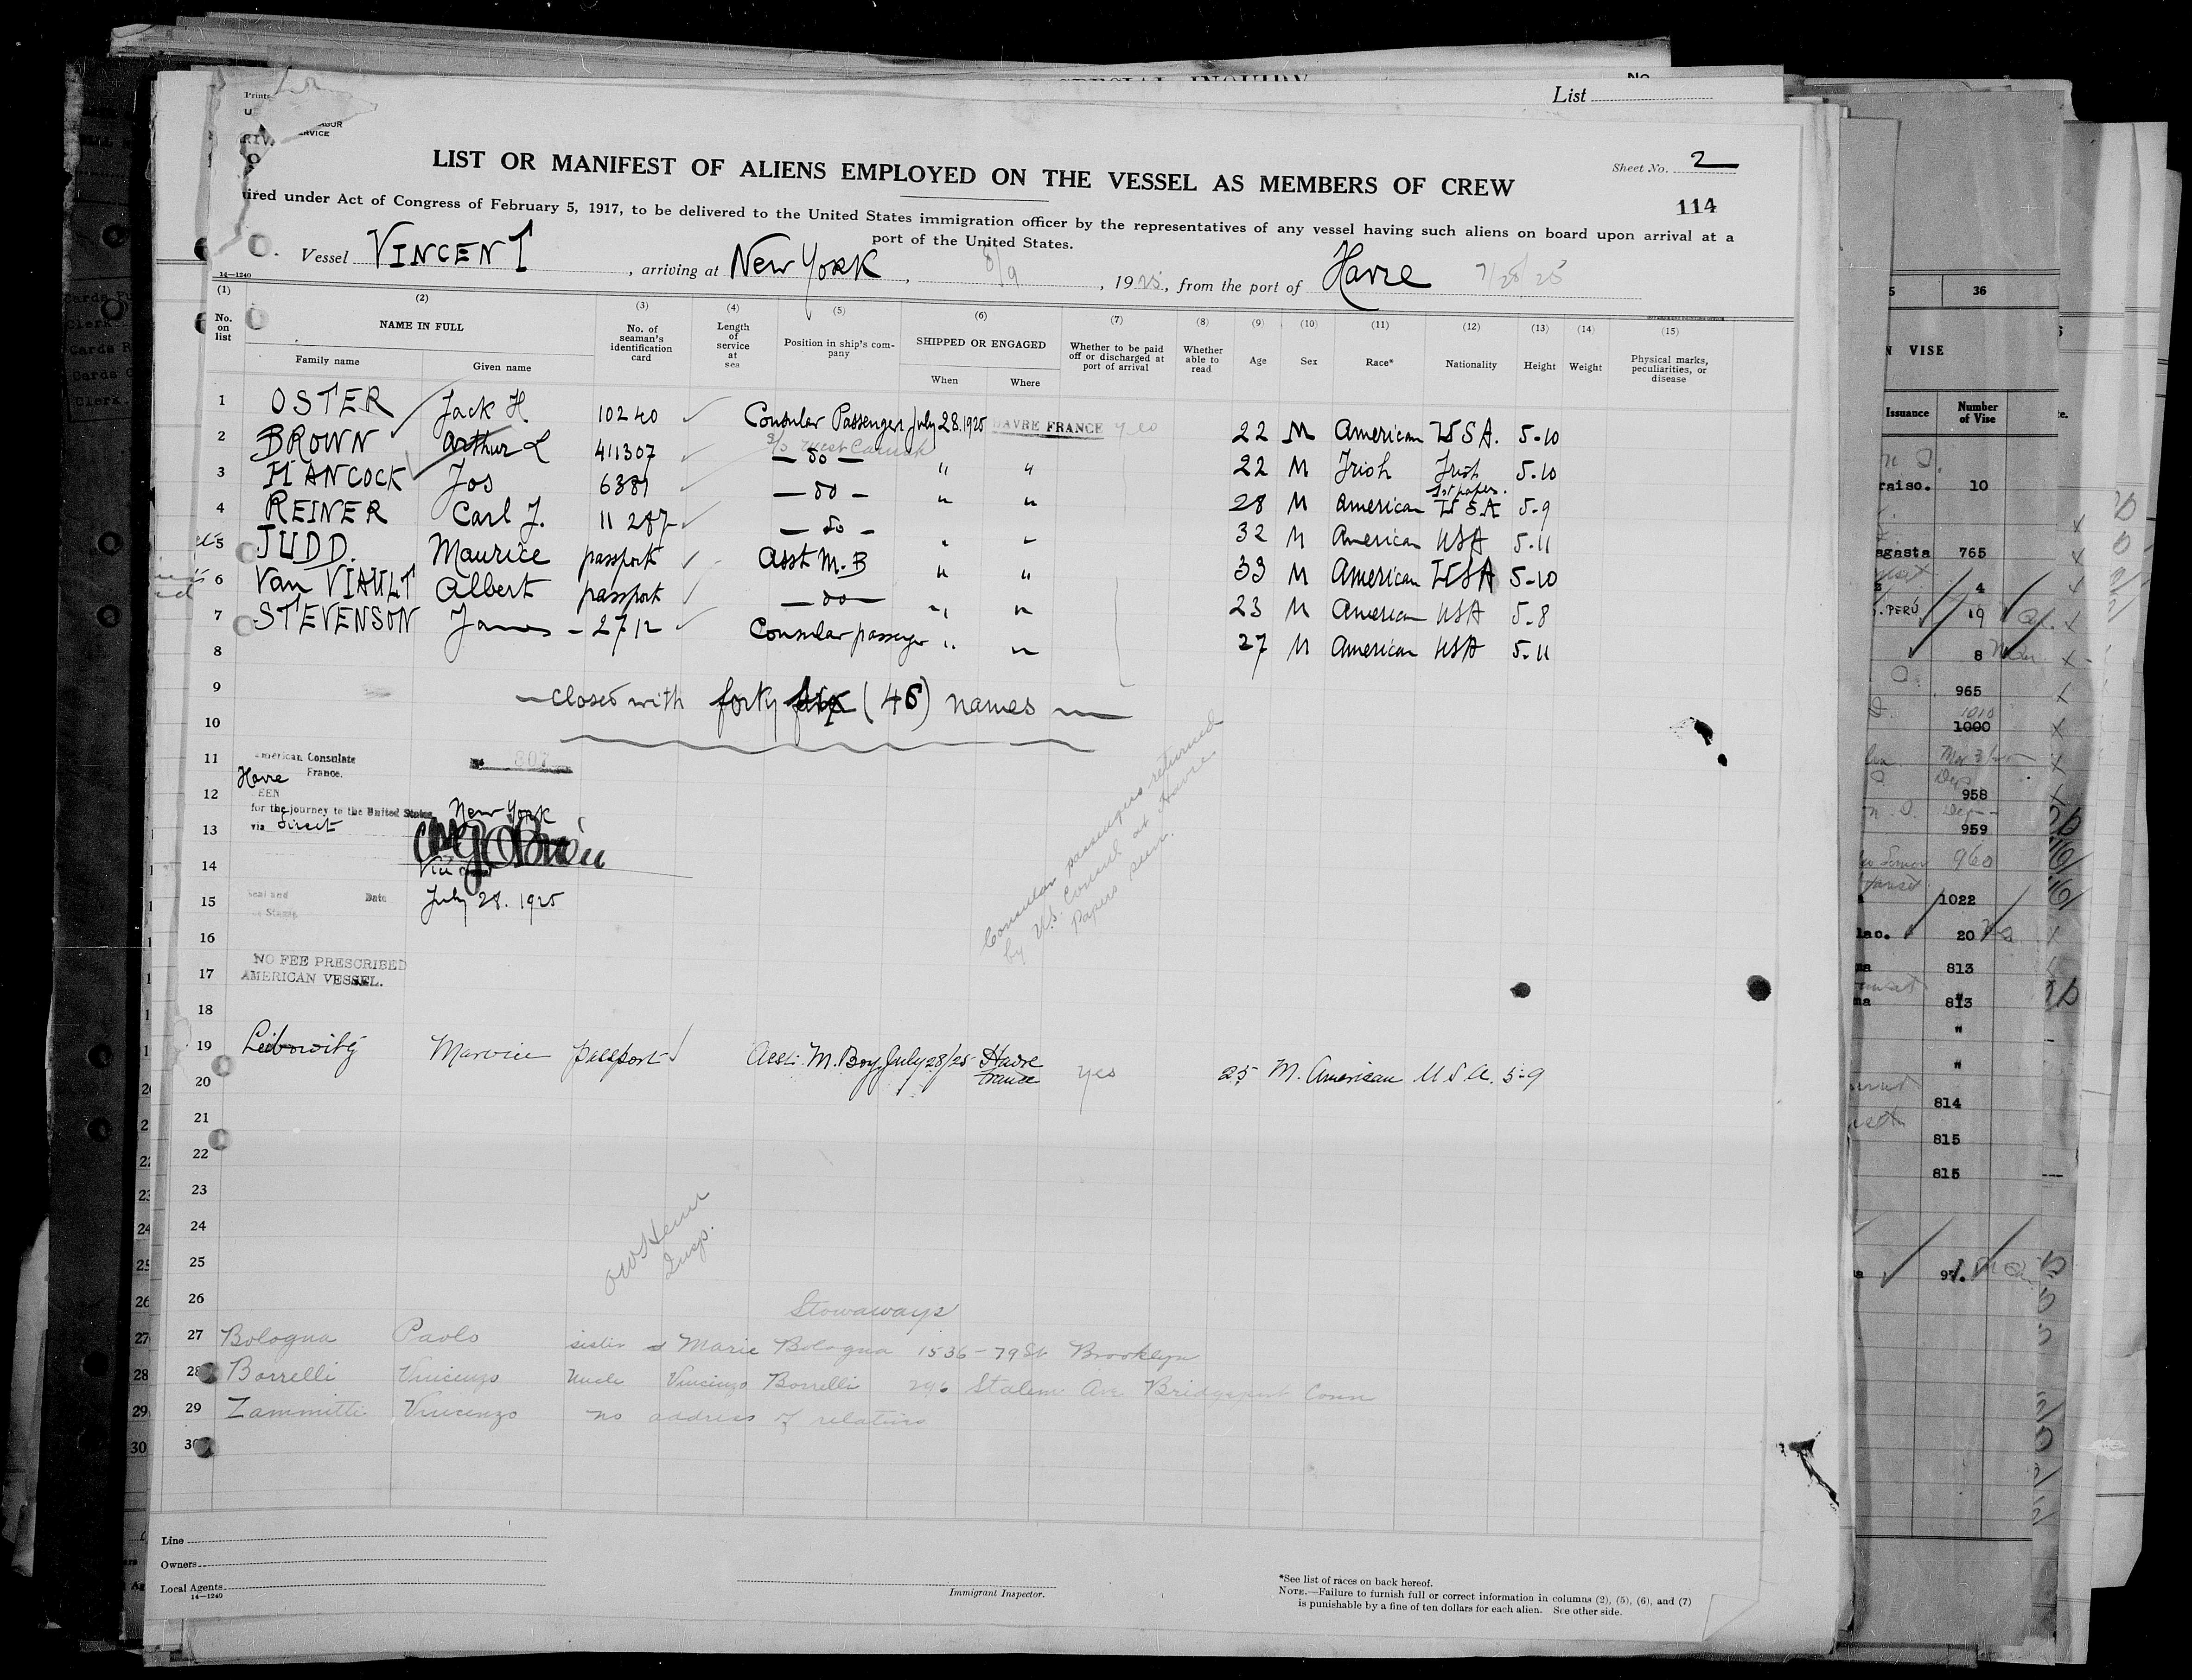 SPECIAL INQUIRY
No.
List
Sheet No. 2
LIST OR MANIFEST OF ALIENS EMPLOYED ON THE VESSEL AS MEMBERS OF CREW
114
ired under Act of Congress of February 5, 1917, to be delivered to the United States immigration officer by the representatives of any vessel having such aliens on board upon arrival at a
port of the United States.
Vessel VINCENT, arriving at New York, 8/9, 1925, from the port of Havre 7/28/25
14—1240
(1) (2) (3) (4) (5) (6) (7) (8) (9) (10) (11) (12) (13) (14) (15)
No. on list NAME IN FULL Family name Given name No. of seaman's identification card Length of service at sea Position in ship's company SHIPPED OR ENGAGED When Where Whether to be paid off or discharged at port of arrival Whether able to read Age Sex Race* Nationality Height Weight Physical marks, peculiarities, or disease
1 OSTER Jack H 10240 Consular Passenger July 28.1925 HAVRE FRANCE yes 22 M American USA. 5-10
2 BROWN Arthur L 411307 — do — " " 22 M Irish Irish 1st paper. 5-10
3 HANCOCK Jos 6381 — do — " " 28 M American USA 5-9
4 REINER Carl J. 11287 — do — " " 32 M American USA 5-11
5 JUDD. Maurice passport Asst M.B " " 33 M American USA 5-10
6 Van VIAULT Albert passport — do — " " 23 M American USA 5-8
7 STEVENSON James - 2712 Consular passenger " " 27 M American USA 5-11
8
9 — closed with forty six (46) names —
10
11 American Consulate
Havre France.
12 EEN
for the journey to the United States New York
13 via direct
14 Vice
15 Seal and Fee Stamp Date July 28. 1925
Consular passengers returned
by U.S. Consul at Havre.
Papers seen.
16
17 NO FEE PRESCRIBED
AMERICAN VESSEL.
18
19 Leibowitz Marvin passport Asst. M. Boy July 28/25 Havre France yes 25 M. American U S A. 5-9
20
21
22
23
24
Insp.
25
26 Stowaways
27 Bologna Paolo sister Marie Bologna 1536-79 St Brooklyn
28 Borrelli Vincenzo Uncle Vincenzo Borrelli 296 Ave Bridgeport Conn
29 Zammitti Vincenzo no address of relatives
30
Line
Owners
Local Agents
14—1240
Immigrant Inspector.
*See list of races on back hereof.
NOTE.—Failure to furnish full or correct information in columns (2), (5), (6), and (7)
is punishable by a fine of ten dollars for each alien. See other side.
36
VISE
Issuance Number of Vise
raiso. 10
agasta 765
4
PERÚ 19
8
965
1000
958
959
960
1022
lao. 20
813
813
"
"
"
814
815
815